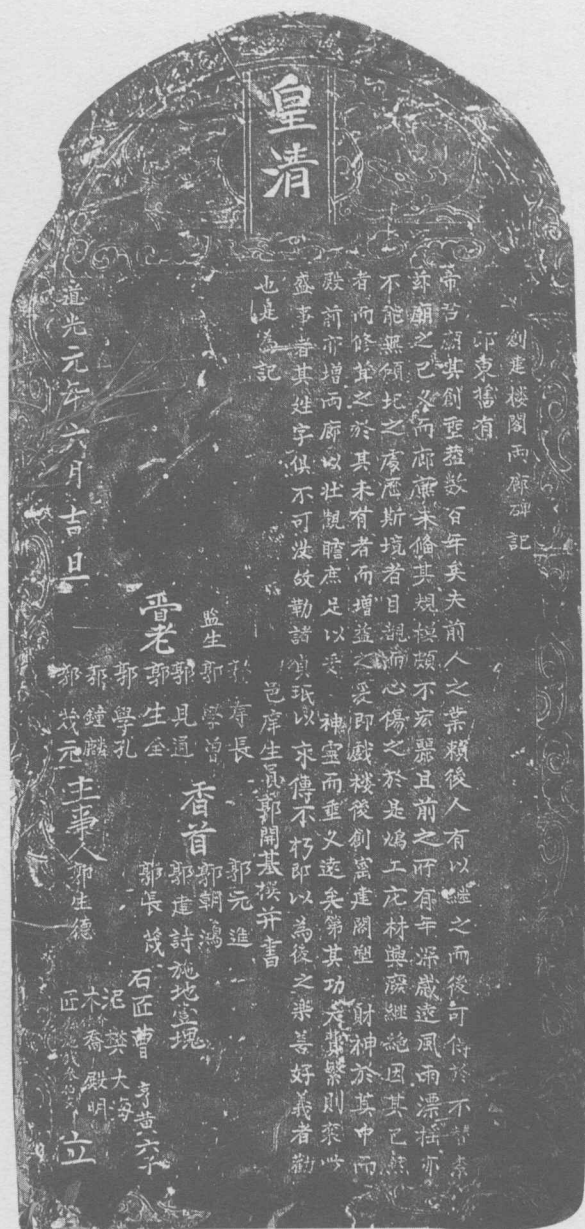 皇清
創建楼閣兩廊碑記
邙東舊有
帝君廟其創垂蓋數百年矣夫前人之業頼後人有以繼之而後可傳於不替
廟之已久而廊廡未俻其規模頗不宏麗且前之所有年深歲遠風雨漂摇亦
不能無傾圯之虞歷斯境者目覩而心傷之於是鳩工庀材興廢繼絶因其已然
者而修葺之於其未有者而增益之爰即戯楼後創窰建閣塑 財神於其中而
殿前亦增兩廊以壯觀瞻庶足以妥 神靈而垂久遠矣第其功程繁則衆此
盛事者其姓字俱不可没故勒諸貞珉以求傳不朽即以為後之楽善好義者勸
也是為記
邑庠生員郭開基撰并書
壽長
監生 郭學曾
郭見通
耆老 郭生全
郭學孔
郭鐘麟
郭茂元
香首
郭元進
郭朝鴻
郭建詩施地壹塊
郭長茂
主事人 郭生德
石匠曹 亨黄六子
泥 樊大海
木 喬殿明
匠
道光元年六月吉旦 立